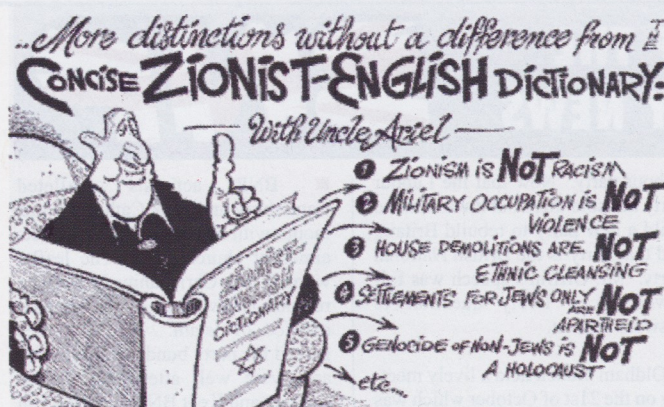 ..More distinctions without a difference from THE
CONCISE ZIONIST-ENGLISH DICTIONARY:
— With Uncle Ariel —
1 ZIONISM IS NOT RACISM
2 MILITARY OCCUPATION IS NOT
VIOLENCE
3 HOUSE DEMOLITIONS ARE NOT
ETHNIC CLEANSING
4 SETTLEMENTS FOR JEWS ONLY ARE NOT
APARTHEID
5 GENOCIDE OF NON-JEWS IS NOT
A HOLOCAUST
etc...
ZIONIST-
ENGLISH
DICTIONARY